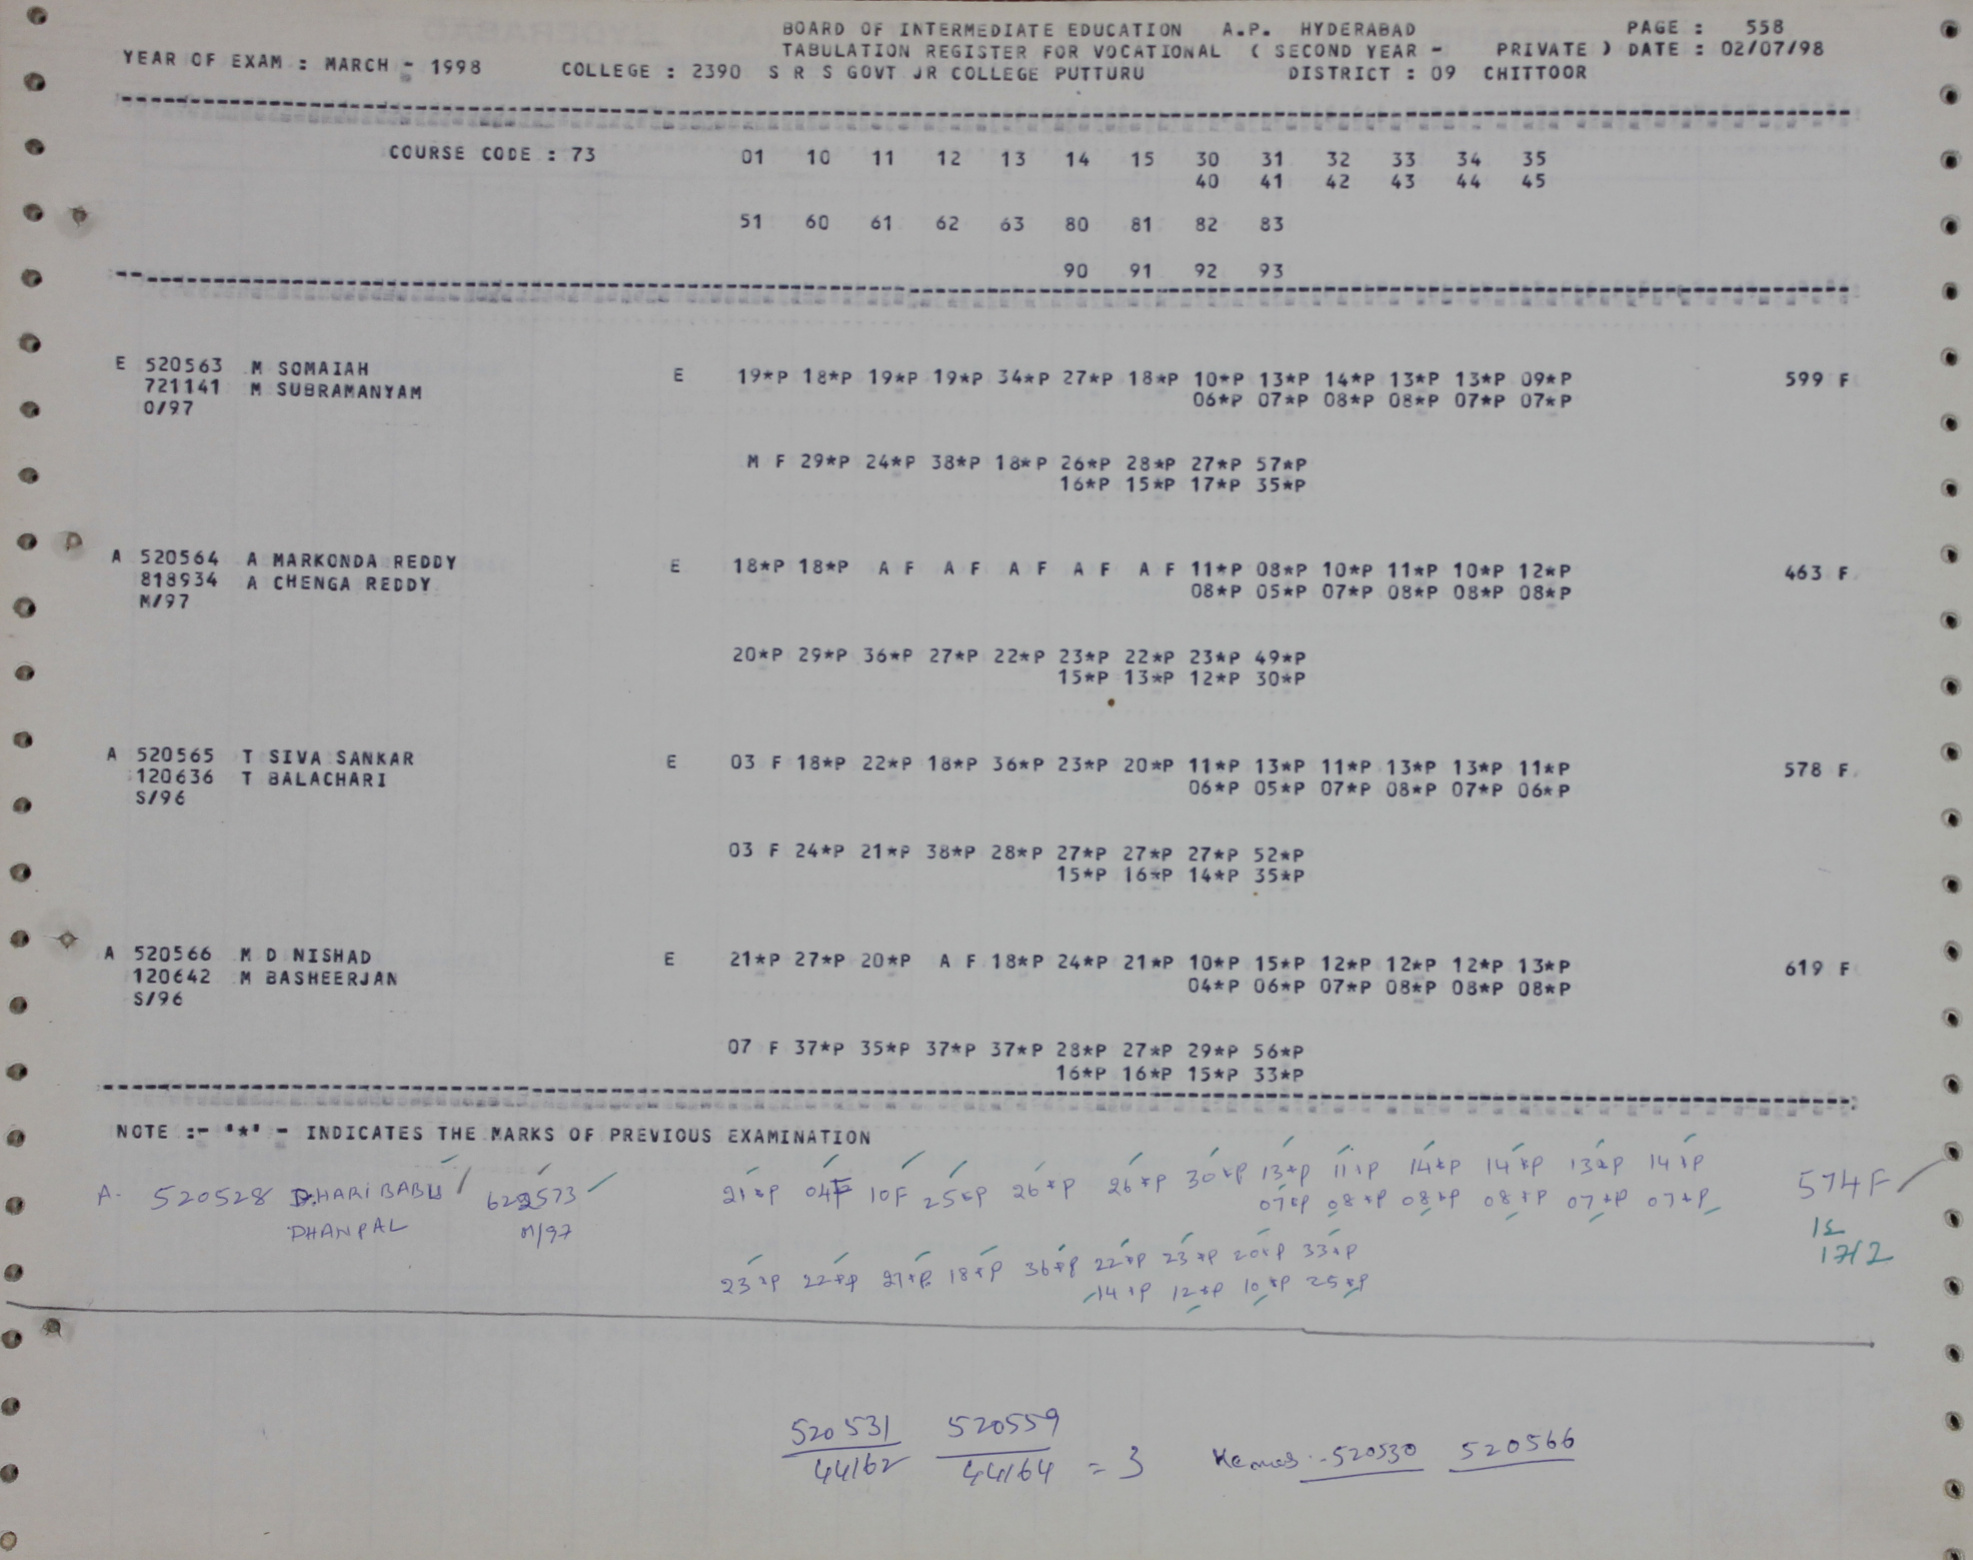 BOARD OF INTERMEDIATE EDUCATION A.P. HYDERABAD PAGE : 558
TABULATION REGISTER FOR VOCATIONAL ( SECOND YEAR - PRIVATE ) DATE : 02/07/98
YEAR OF EXAM : MARCH - 1998 COLLEGE : 2390 S R S GOVT JR COLLEGE PUTTURU DISTRICT : 09 CHITTOOR
COURSE CODE : 73 01 10 11 12 13 14 15 30 31 32 33 34 35
40 41 42 43 44 45
51 60 61 62 63 80 81 82 83
90 91 92 93
E 520563 M SOMAIAH E 19*P 18*P 19*P 19*P 34*P 27*P 18*P 10*P 13*P 14*P 13*P 13*P 09*P 599 F
721141 M SUBRAMANYAM 06*P 07*P 08*P 08*P 07*P 07*P
O/97
M F 29*P 24*P 38*P 18*P 26*P 28*P 27*P 57*P
16*P 15*P 17*P 35*P
A 520564 A MARKONDA REDDY E 18*P 18*P A F A F A F A F A F 11*P 08*P 10*P 11*P 10*P 12*P 463 F
818934 A CHENGA REDDY 08*P 05*P 07*P 08*P 08*P 08*P
M/97
20*P 29*P 36*P 27*P 22*P 23*P 22*P 23*P 49*P
15*P 13*P 12*P 30*P
A 520565 T SIVA SANKAR E 03 F 18*P 22*P 18*P 36*P 23*P 20*P 11*P 13*P 11*P 13*P 13*P 11*P 578 F
120636 T BALACHARI 06*P 05*P 07*P 08*P 07*P 06*P
S/96
03 F 24*P 21*P 38*P 28*P 27*P 27*P 27*P 52*P
15*P 16*P 14*P 35*P
A 520566 M D NISHAD E 21*P 27*P 20*P A F 18*P 24*P 21*P 10*P 15*P 12*P 12*P 12*P 13*P 619 F
120642 M BASHEERJAN 04*P 06*P 07*P 08*P 08*P 08*P
S/96
07 F 37*P 35*P 37*P 37*P 28*P 27*P 29*P 56*P
16*P 16*P 15*P 33*P
NOTE :- '*' - INDICATES THE MARKS OF PREVIOUS EXAMINATION
A. 520528 D.HARIBABU 622573 21*P 04F 10F 25*P 26*P 26*P 30*P 13*P 11*P 14*P 14*P 13*P 14*P 574F
DHANPAL M/97 07*P 08*P 08*P 08*P 07*P 07*P
23*P 22*P 21*P 18*P 36*P 22*P 23*P 20*P 33*P
14*P 12*P 10*P 25*P
520531 520559
44162 44164 = 3 520530 520566